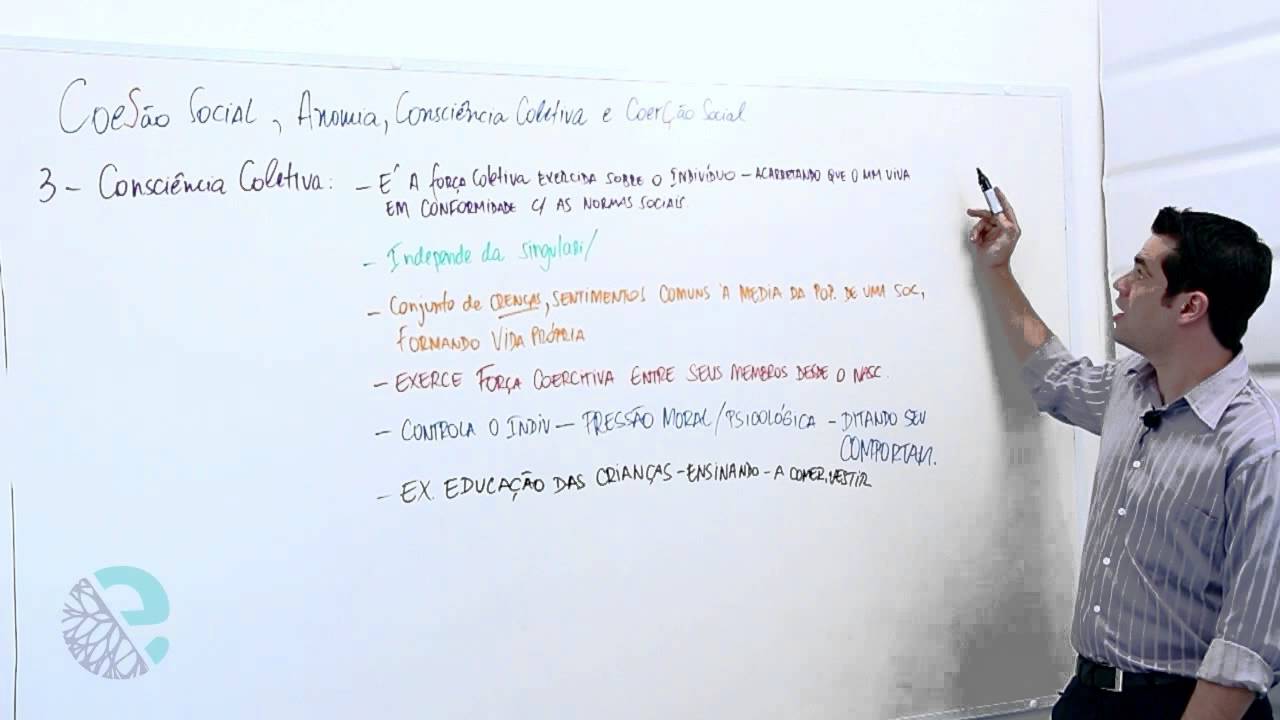 Coesão Social, Anomia, Consciência Coletiva e Coerção Social
3 - Consciência Coletiva: - É A força Coletiva EXERCIDA SOBRE O INDIVÍDUO - ACARRETANDO QUE O MM VIVA
EM CONFORMIDADE C/ AS NORMAS SOCIAIS.
- Independe da singulari/
- Conjunto de CRENÇAS, SENTIMENTOS COMUNS À MEDIA DA POP. DE UMA SOC,
FORMANDO VIDA PRÓPRIA
- EXERCE FORÇA COERCITIVA ENTRE SEUS MEMBROS DESDE O NASC.
- CONTROLA O INDIV - PRESSÃO MORAL/PSICOLÓGICA - DITANDO SEU
COMPORTAM.
- EX. EDUCAÇÃO DAS CRIANÇAS - ENSINANDO - A COMER, VESTIR
e